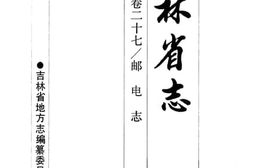 林省志
卷二十七/邮电志
●吉林省地方志编纂委